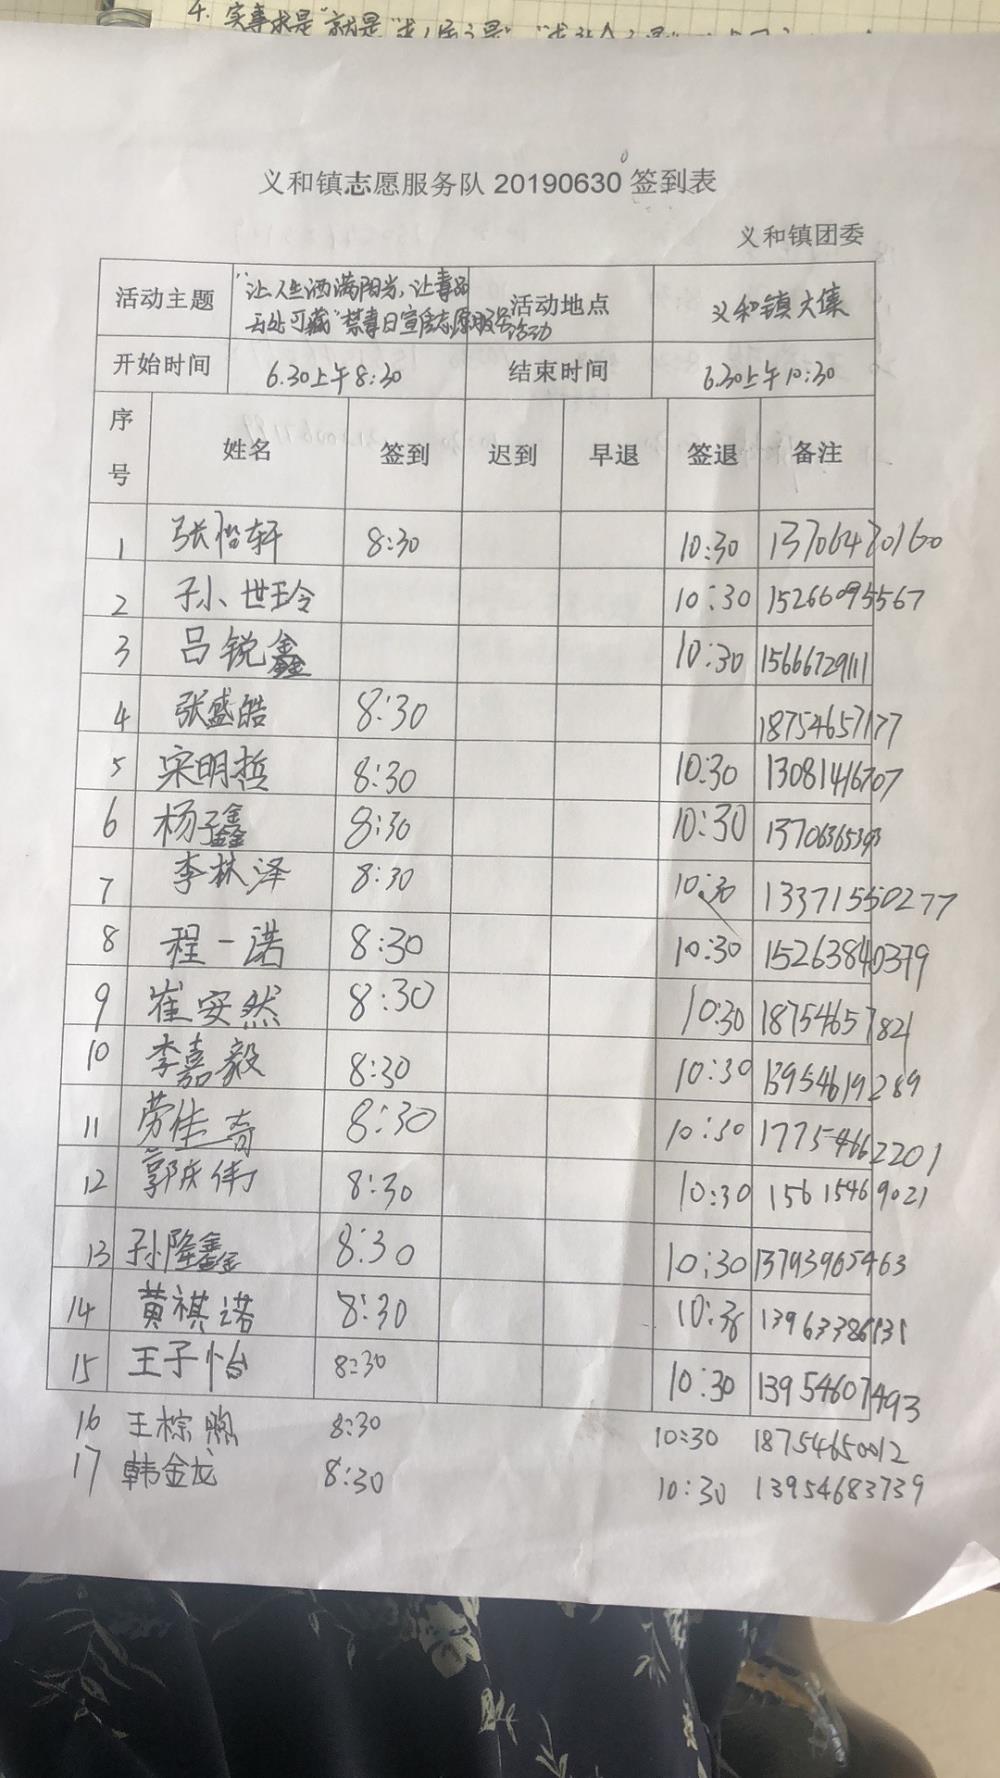 4. 实事求是"就是
义和镇志愿服务队 20190630 签到表
义和镇团委
活动主题 "让人生洒满阳光,让毒品无处可藏"禁毒日宣传志愿服务活动 活动地点 义和镇大集
开始时间 6.30上午8:30 结束时间 6.30上午10:30
序号 姓名 签到 迟到 早退 签退 备注
1 张偕轩 8:30 10:30 13706470160
2 孙世玲 10:30 15266095567
3 吕锐鑫 10:30 15666729111
4 张盛皓 8:30 18754657177
5 宋明哲 8:30 10:30 13081416707
6 杨子鑫 8:30 10:30 13706365393
7 李林泽 8:30 10:30 13371550277
8 程一诺 8:30 10:30 15263840379
9 崔安然 8:30 10:30 18754657821
10 李嘉毅 8:30 10:30 13954619289
11 劳佳奇 8:30 10:30 17754662201
12 郭庆伟 8:30 10:30 15615469021
13 孙隆鑫 8:30 10:30 13793965463
14 黄祺诺 8:30 10:30
15 王子怡 8:30 10:30 13954607493
16 王棕煦 8:30 10:30 18754650012
17 韩金龙 8:30 10:30 13954683739